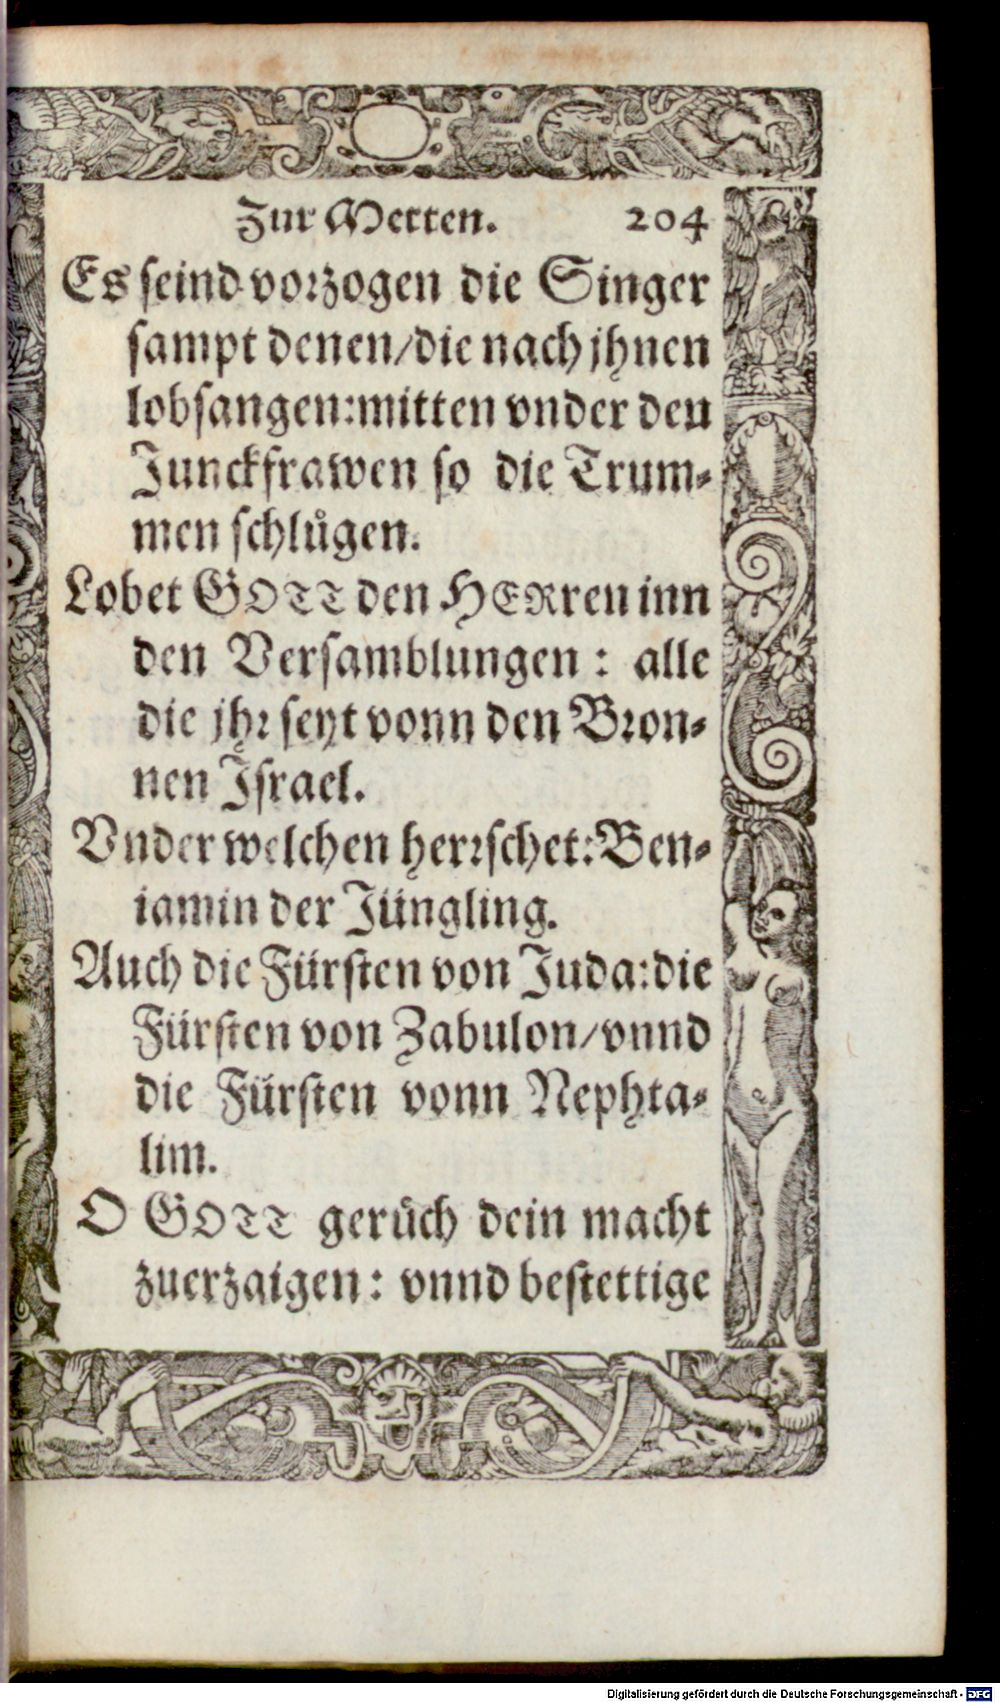 Zur Metten. 204
Es seind vorzogen die Singer
sampt denen/die nach jhnen
lobsangen:mitten vnder den
Junckfrawen so die Trum-
men schlůgen.
Lobet GOTT den HERren inn
den Versamblungen: alle
die jhr seyt vonn den Bron-
nen Israel.
Vnder welchen herrschet:Ben-
iamin der Jüngling.
Auch die Fürsten von Juda:die
Fürsten von Zabulon/vnnd
die Fürsten vonn Nephta-
lim.
O GOTT gerůch dein macht
zuerzaigen: vnnd bestettige
Digitalisierung gefördert durch die Deutsche Forschungsgemeinschaft - DFG